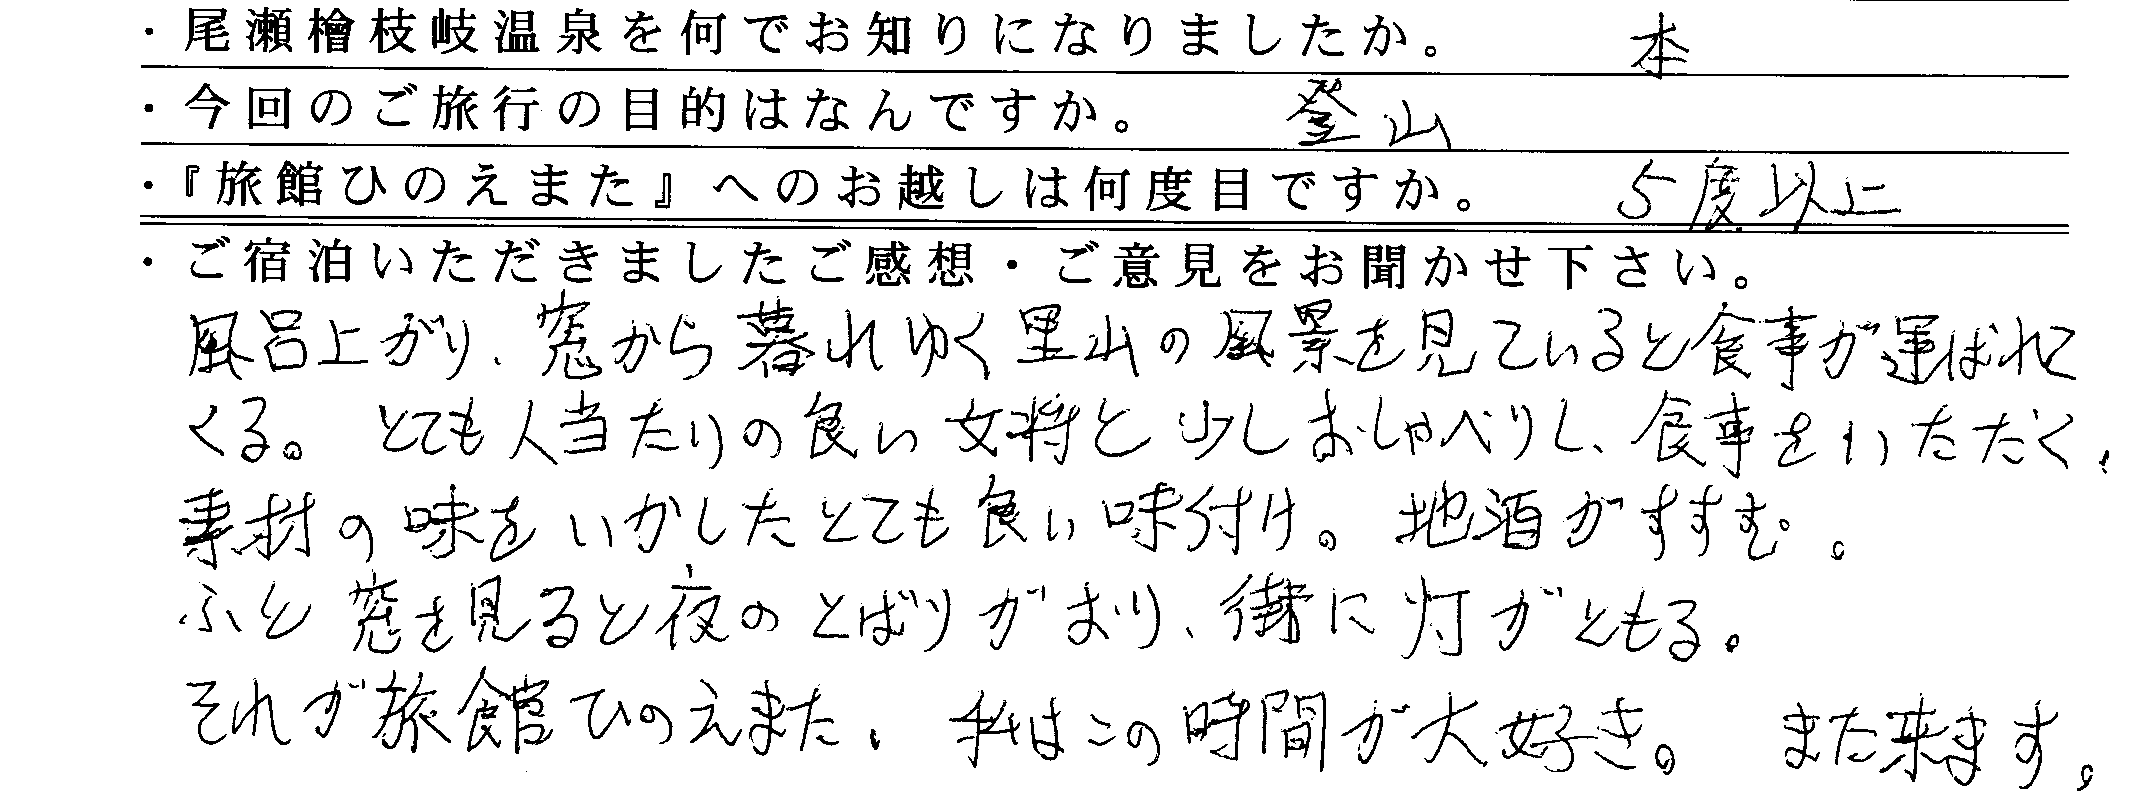 ・尾瀬檜枝岐温泉を何でお知りになりましたか。 本
・今回のご旅行の目的はなんですか。 登山
・『旅館ひのえまた』へのお越しは何度目ですか。 5度以上
・ご宿泊いただきましたご感想・ご意見をお聞かせ下さい。
風呂上がり、窓から暮れゆく里山の風景を見ていると食事が運ばれて
くる。とても人当たりの良い女将と少しおしゃべりし、食事をいただく。
素材の味をいかしたとても良い味付け。地酒がすすむ。
ふと窓を見ると夜のとばりがおり、街に灯がともる。
それが旅館ひのえまた。私はこの時間が大好き。また来ます。